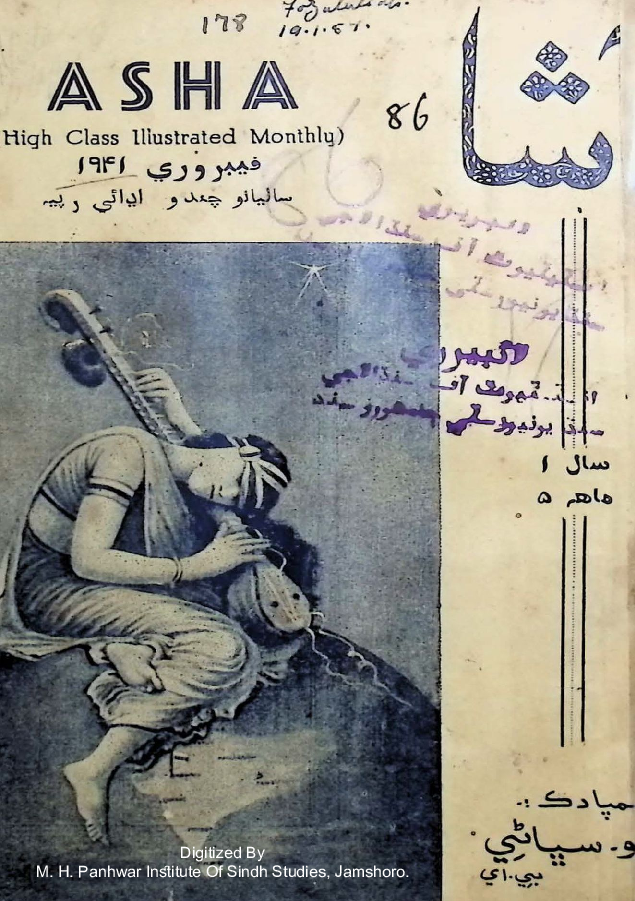 178
19.1.87.
ASHA
High Class Illustrated Monthly)
86
فيبروري ۱۹۴۱
ساليانو چندو اڍائي رپيہ
شا
لائبريري
انسٽيٽيوٽ آف سنڌالاجي
سنڌ يونيورسٽي
لائبريري
آف سنڌالاجي
سنڌ يونيورسٽي ڄامشورو سنڌ
سال ۱
ماهہ ۵
مپادڪ :-
و. سڀاڻي
بي. اي
Digitized By
M. H. Panhwar Institute Of Sindh Studies, Jamshoro.